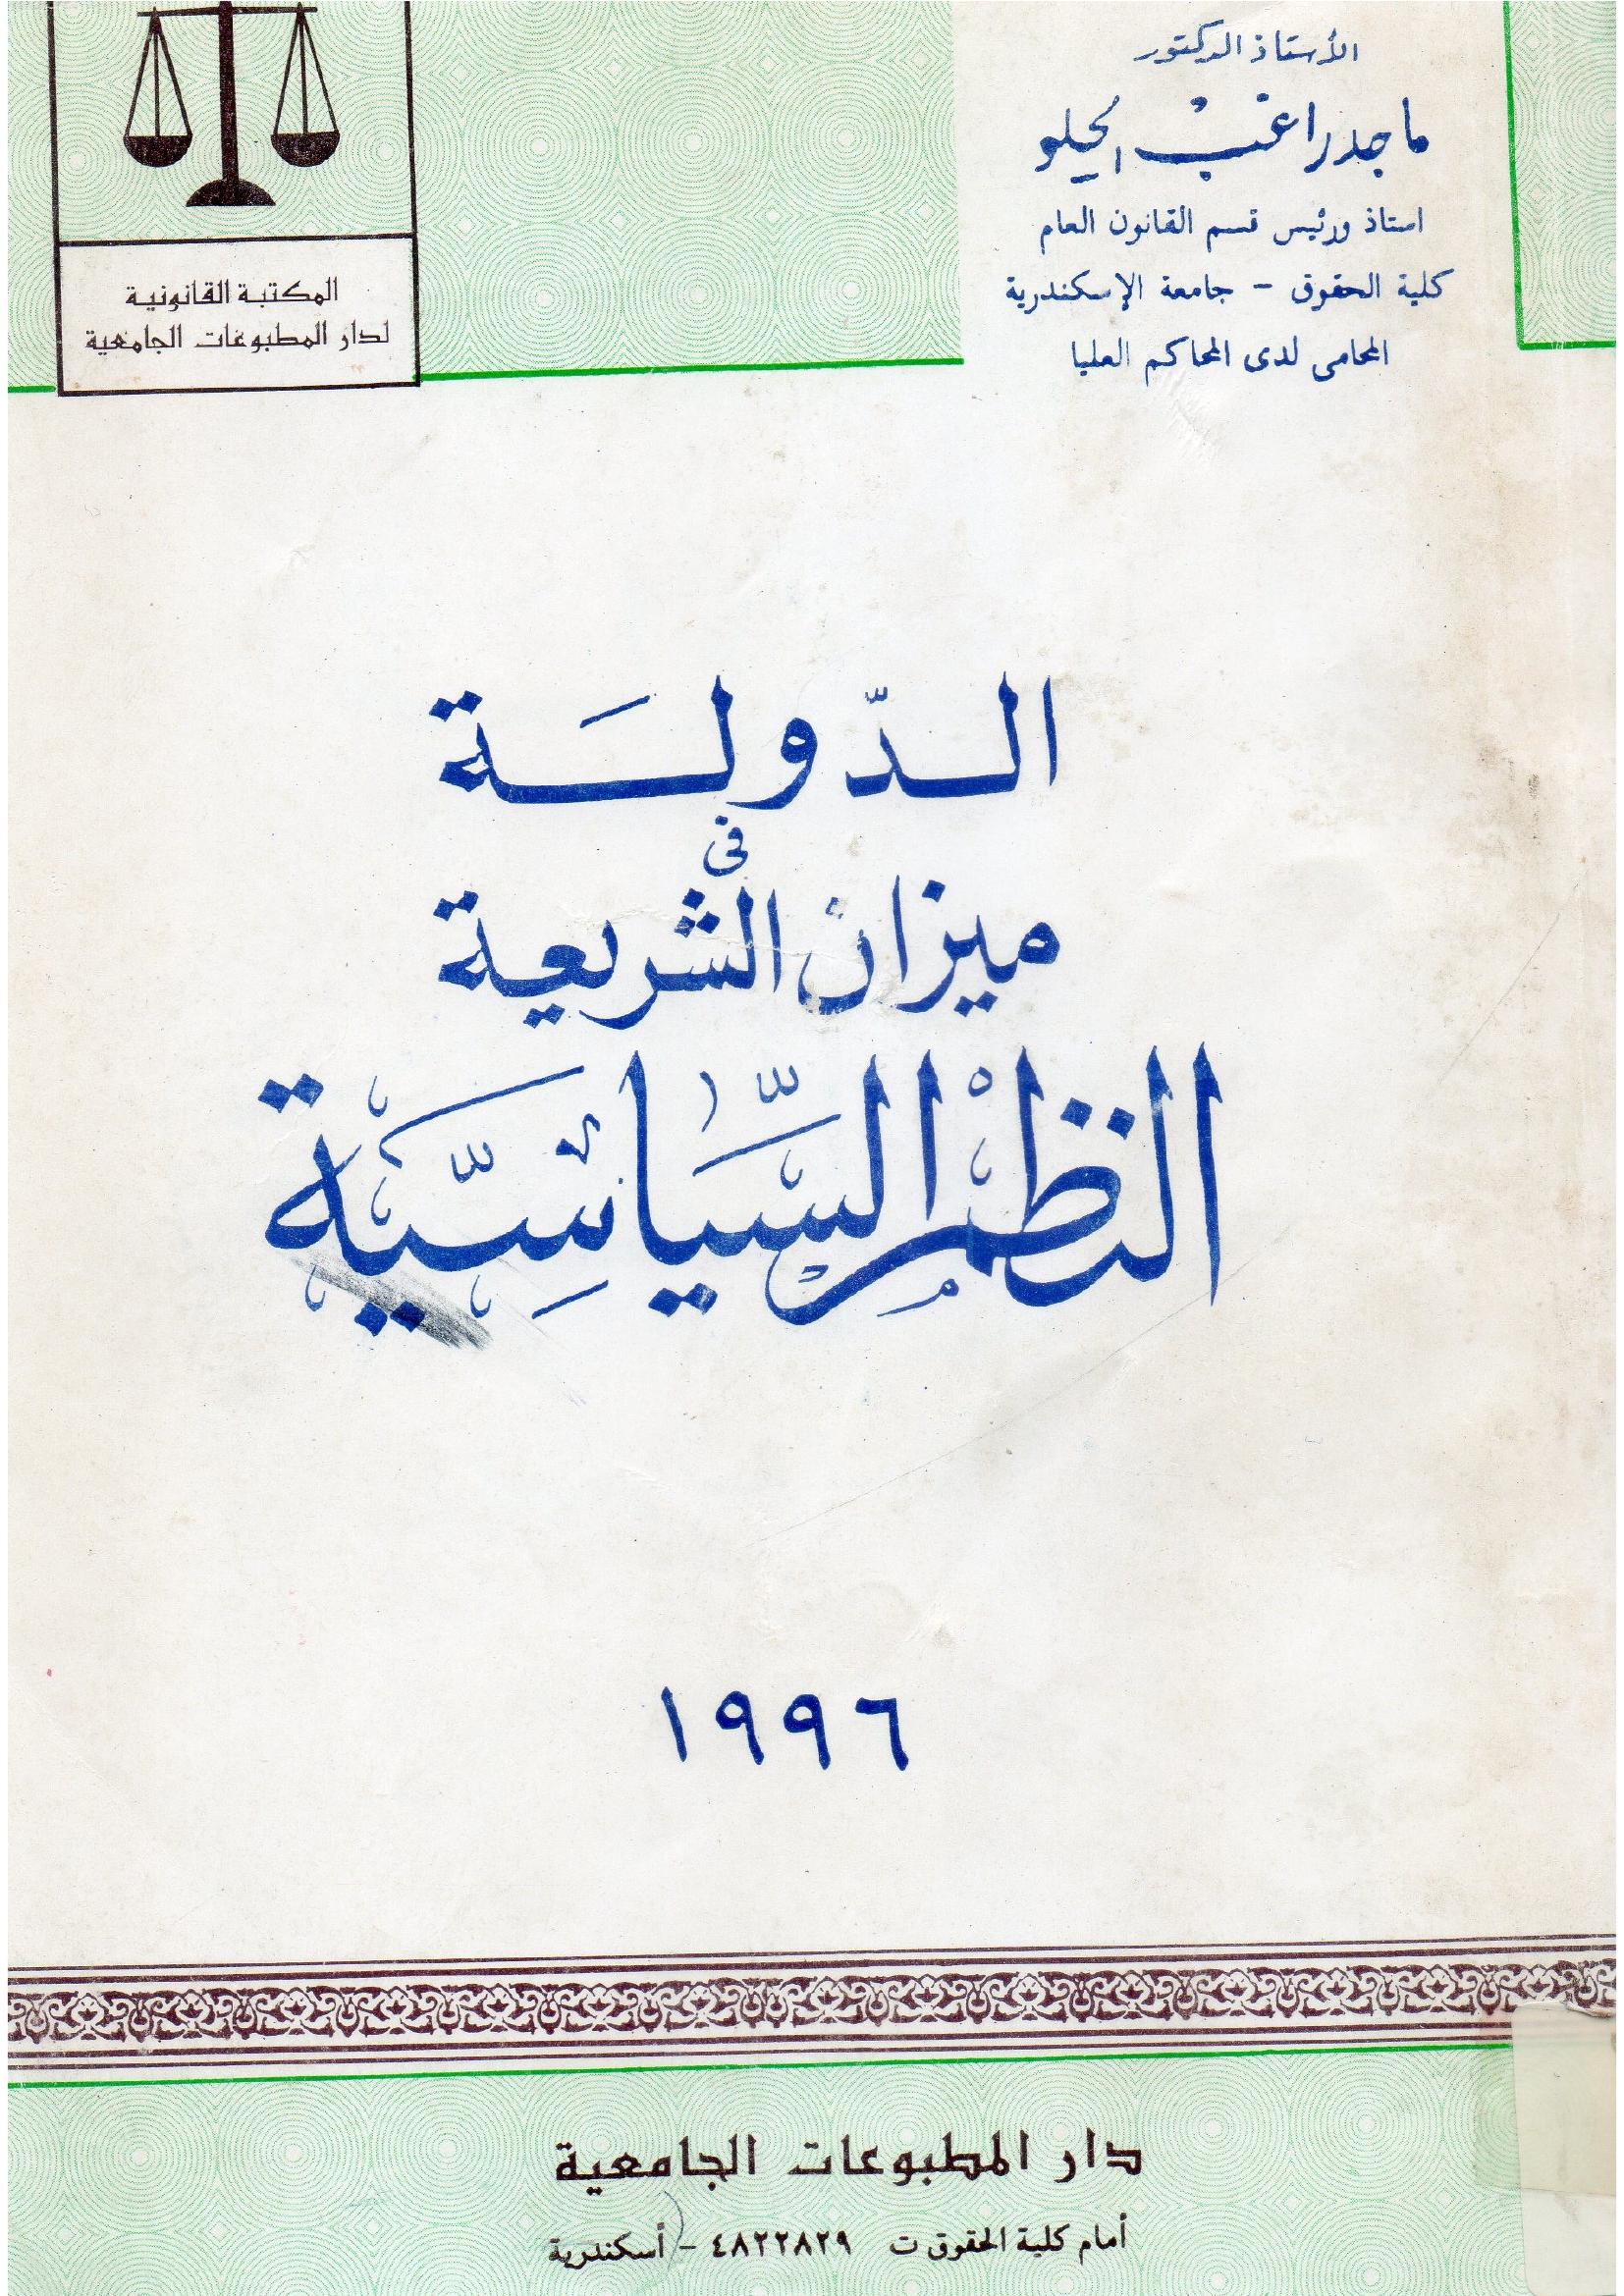 الأستاذ الدكتور
ماجد راغب الحلو
استاذ ورئيس قسم القانون العام
كلية الحقوق - جامعة الإسكندرية
المحامى لدى المحاكم العليا
المكتبة القانونية
لدار المطبوعات الجامعية
الدّولَة
فى
ميزان الشريعة
النظْم السِّيَاسِيَّة
١٩٩٦
دار المطبوعات الجامعية
أمام كلية الحقوق ت ٤٨٢٢٨٢٩ - أسكندرية